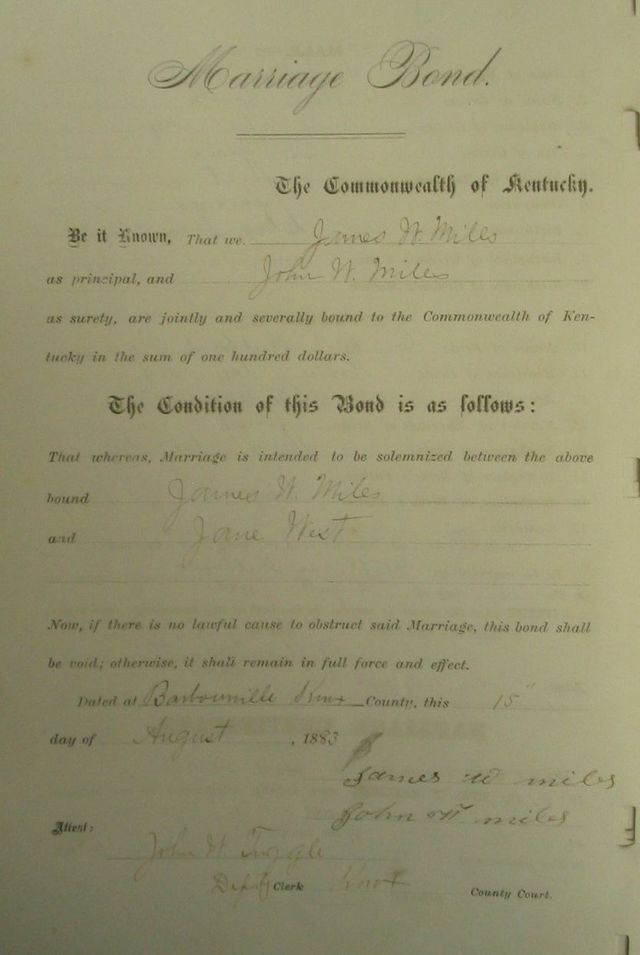 Marriage Bond.
The Commonwealth of Kentucky.
Be it Known, That we. James W. Miles
as principal, and John W. Miles
as surety, are jointly and severally bound to the Commonwealth of Ken-
tucky in the sum of one hundred dollars.
The Condition of this Bond is as follows:
That whereas, Marriage is intended to be solemnized between the above
bound James W. Miles
and Jane West
Now, if there is no lawful cause to obstruct said Marriage, this bond shall
be void; otherwise, it shall remain in full force and effect.
Dated at Barbourville Knox County, this 15"
day of August, 1883
James W miles
John W miles
Attest:
John W.
Deputy Clerk Knox County Court.